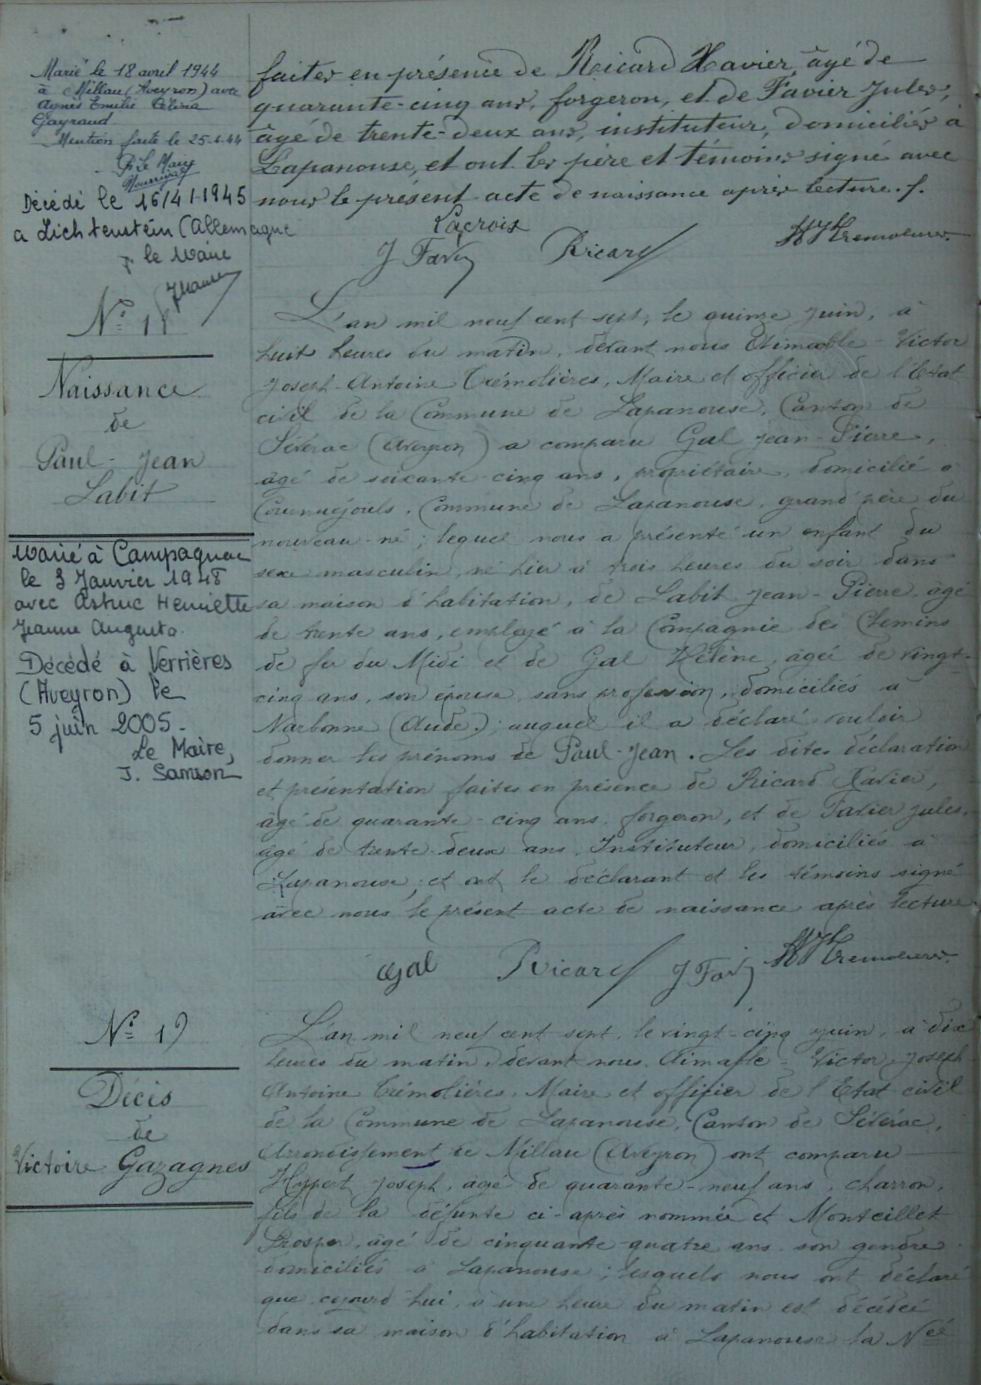 Marié le 18 avril 1944
à Millau (Aveyron) avec
Agnès Emilie
Gayraud
Mention faite le 25-4-44
P. le Maire
Décédé le 16/4/1945
a Lichtenstein (Allemagne
le Maire
faites en présence de Ricard Xavier, âgé de
quarante-cinq ans, forgeron, et de Favier Jules,
âgé de trente-deux ans, instituteur, domiciliés à
Lapanouse, et ont les père et témoins signé avec
nous le présent acte de naissance après lecture.
Lacroix
J Favier Ricard Tremolieres
N° 18
Naissance
de
Paul-Jean
Labit
Marié à Campagnac
le 3 Janvier 1948
avec Astruc Henriette
Jeanne Augusta.
Décédé à Verrières
(Aveyron) le
5 juin 2005.
Le Maire,
J. Samson
L'an mil neuf cent sept, le quinze juin, à
huit heures du matin, devant nous Victor
Joseph-Antoine Trémolières, Maire et officier de l'Etat
civil de la Commune de Lapanouse, Canton de
Sévérac (Aveyron) a comparu Gal Jean-Pierre,
âgé de soixante-cinq ans, propriétaire, domicilié à
Cournuéjouls, Commune de Lapanouse, grand père du
nouveau-né ; lequel nous a présenté un enfant du
sexe masculin, né hier à trois heures du soir dans
sa maison d'habitation, de Labit Jean-Pierre, âgé
de trente ans, employé à la Compagnie des Chemins
de fer du Midi et de Gal Hélène, âgée de vingt-
cinq ans, son épouse, sans profession, domiciliés à
Narbonne (Aude) ; auquel il a déclaré vouloir
donner les prénoms de Paul-Jean. Les dites déclaration
et présentation faites en présence de Ricard Xavier,
âgé de quarante-cinq ans, forgeron, et de Favier Jules,
âgé de trente-deux ans, Instituteur, domiciliés à
Lapanouse, et ont le déclarant et les témoins signé
avec nous le présent acte de naissance après lecture.
Gal Ricard J Favier Tremolieres
N° 19
Décès
de
Victoire Gazagnes
L'an mil neuf cent sept, le vingt-cinq juin, à dix
heures du matin, devant nous Victor Joseph
Antoine Trémolières, Maire et officier de l'Etat civil
de la Commune de Lapanouse, Canton de Sévérac,
Arrondissement de Millau (Aveyron) ont comparu
Joseph, âgé de quarante-neuf ans, charron,
fils de la défunte ci-après nommée et Monteillet
Prosper, âgé de cinquante-quatre ans, son gendre
domiciliés à Lapanouse ; lesquels nous ont déclaré
que cejourd'hui, à une heure du matin est décédée
dans sa maison d'habitation à Lapanouse la Née